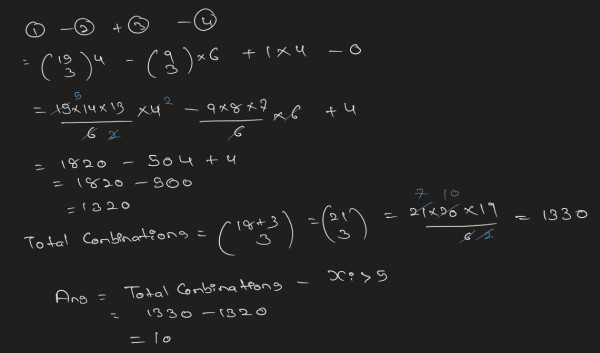 ① - ② + ③ - ④
= (15 3) 4 - (9 3) × 6 + 1 × 4 - 0
= 15×14×13 / 6 2 × 4 2 - 9×8×7 / 6 × 6 + 4 5
= 1820 - 504 + 4
= 1820 - 500
= 1320
Total Combinations = (18+3 3) = (21 3) = 21×20×19 / 6 2 = 1330 7 10
Ans = Total Combinations - xi > 5
= 1330 - 1320
= 10